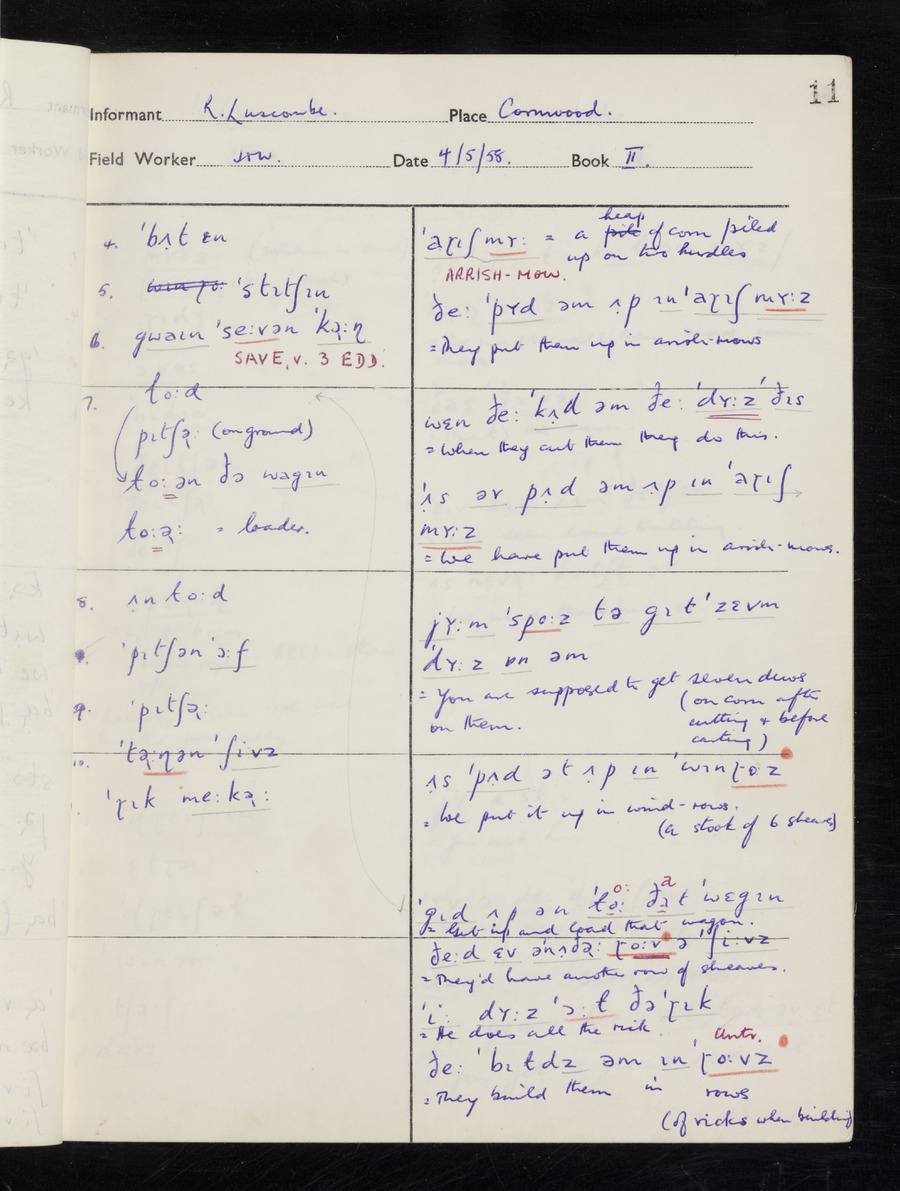 11
Informant R. Luscombe. Place Cornwood.
Field Worker JTW. Date 4/5/58. Book II.
4. ˈbɪt ɛn
5. ˈstɪtʃɪn
6. gwaɪn ˈseːvən ˈkəːɳ
SAVE, v. 3 EDD.
7. ɫoːd
pɪtʃə (on ground)
ɫoːən ðə wagɪn
ɫoːə: = loader.
8. ʌnɫoːd
ˈpɪtʃən ˈɔːf
9. ˈpɪtʃəː
10. ˈtəːɳən ˈʃiːvz
ˈɽɪk meːkəː
ˈaɽɪʃ mʏː = a heap of corn piled
up on two hurdles
ARRISH-MOW.
ðeː ˈpʏd əm ʌp ɪn ˈaɽɪʃ mʏːz
= They put them up in arrish-mows
wɛn ðeː ˈkʌd əm ðeː ˈdʏːz ˈðɪs
= when they cut them they do this.
ˈʌs əv pʌd əm ʌp ɪn ˈaɽɪʃ
mʏːz
= we have put them up in arrish-mows.
jʏːm ˈspoːz tə gɪt ˈzɛvm
ˈdʏːz ɒn əm
= You are supposed to get seven dews
on them. (on corn after
cutting & before
carting)
ʌs ˈpʌd ət ʌp ɪn ˈwɪnɽoːz
= We put it up in wind-rows.
(a stook of 6 sheaves)
ˈgɪd ʌp ən ˈɫoː ðat ˈwɛgɪn
= Get up and load that wagon.
ðeːd ɛv əˈnʌðəː ɽoːv ə ˈʃiːvz
= They'd have another row of sheaves.
ˈiː dʏːz ˈɔːɫ ðə ˈɽɪk
= He does all the rick.
antr.
ðeː ˈbɪɫdz əm ɪn ˈɽoːvz
= They build them in rows
(of ricks when building